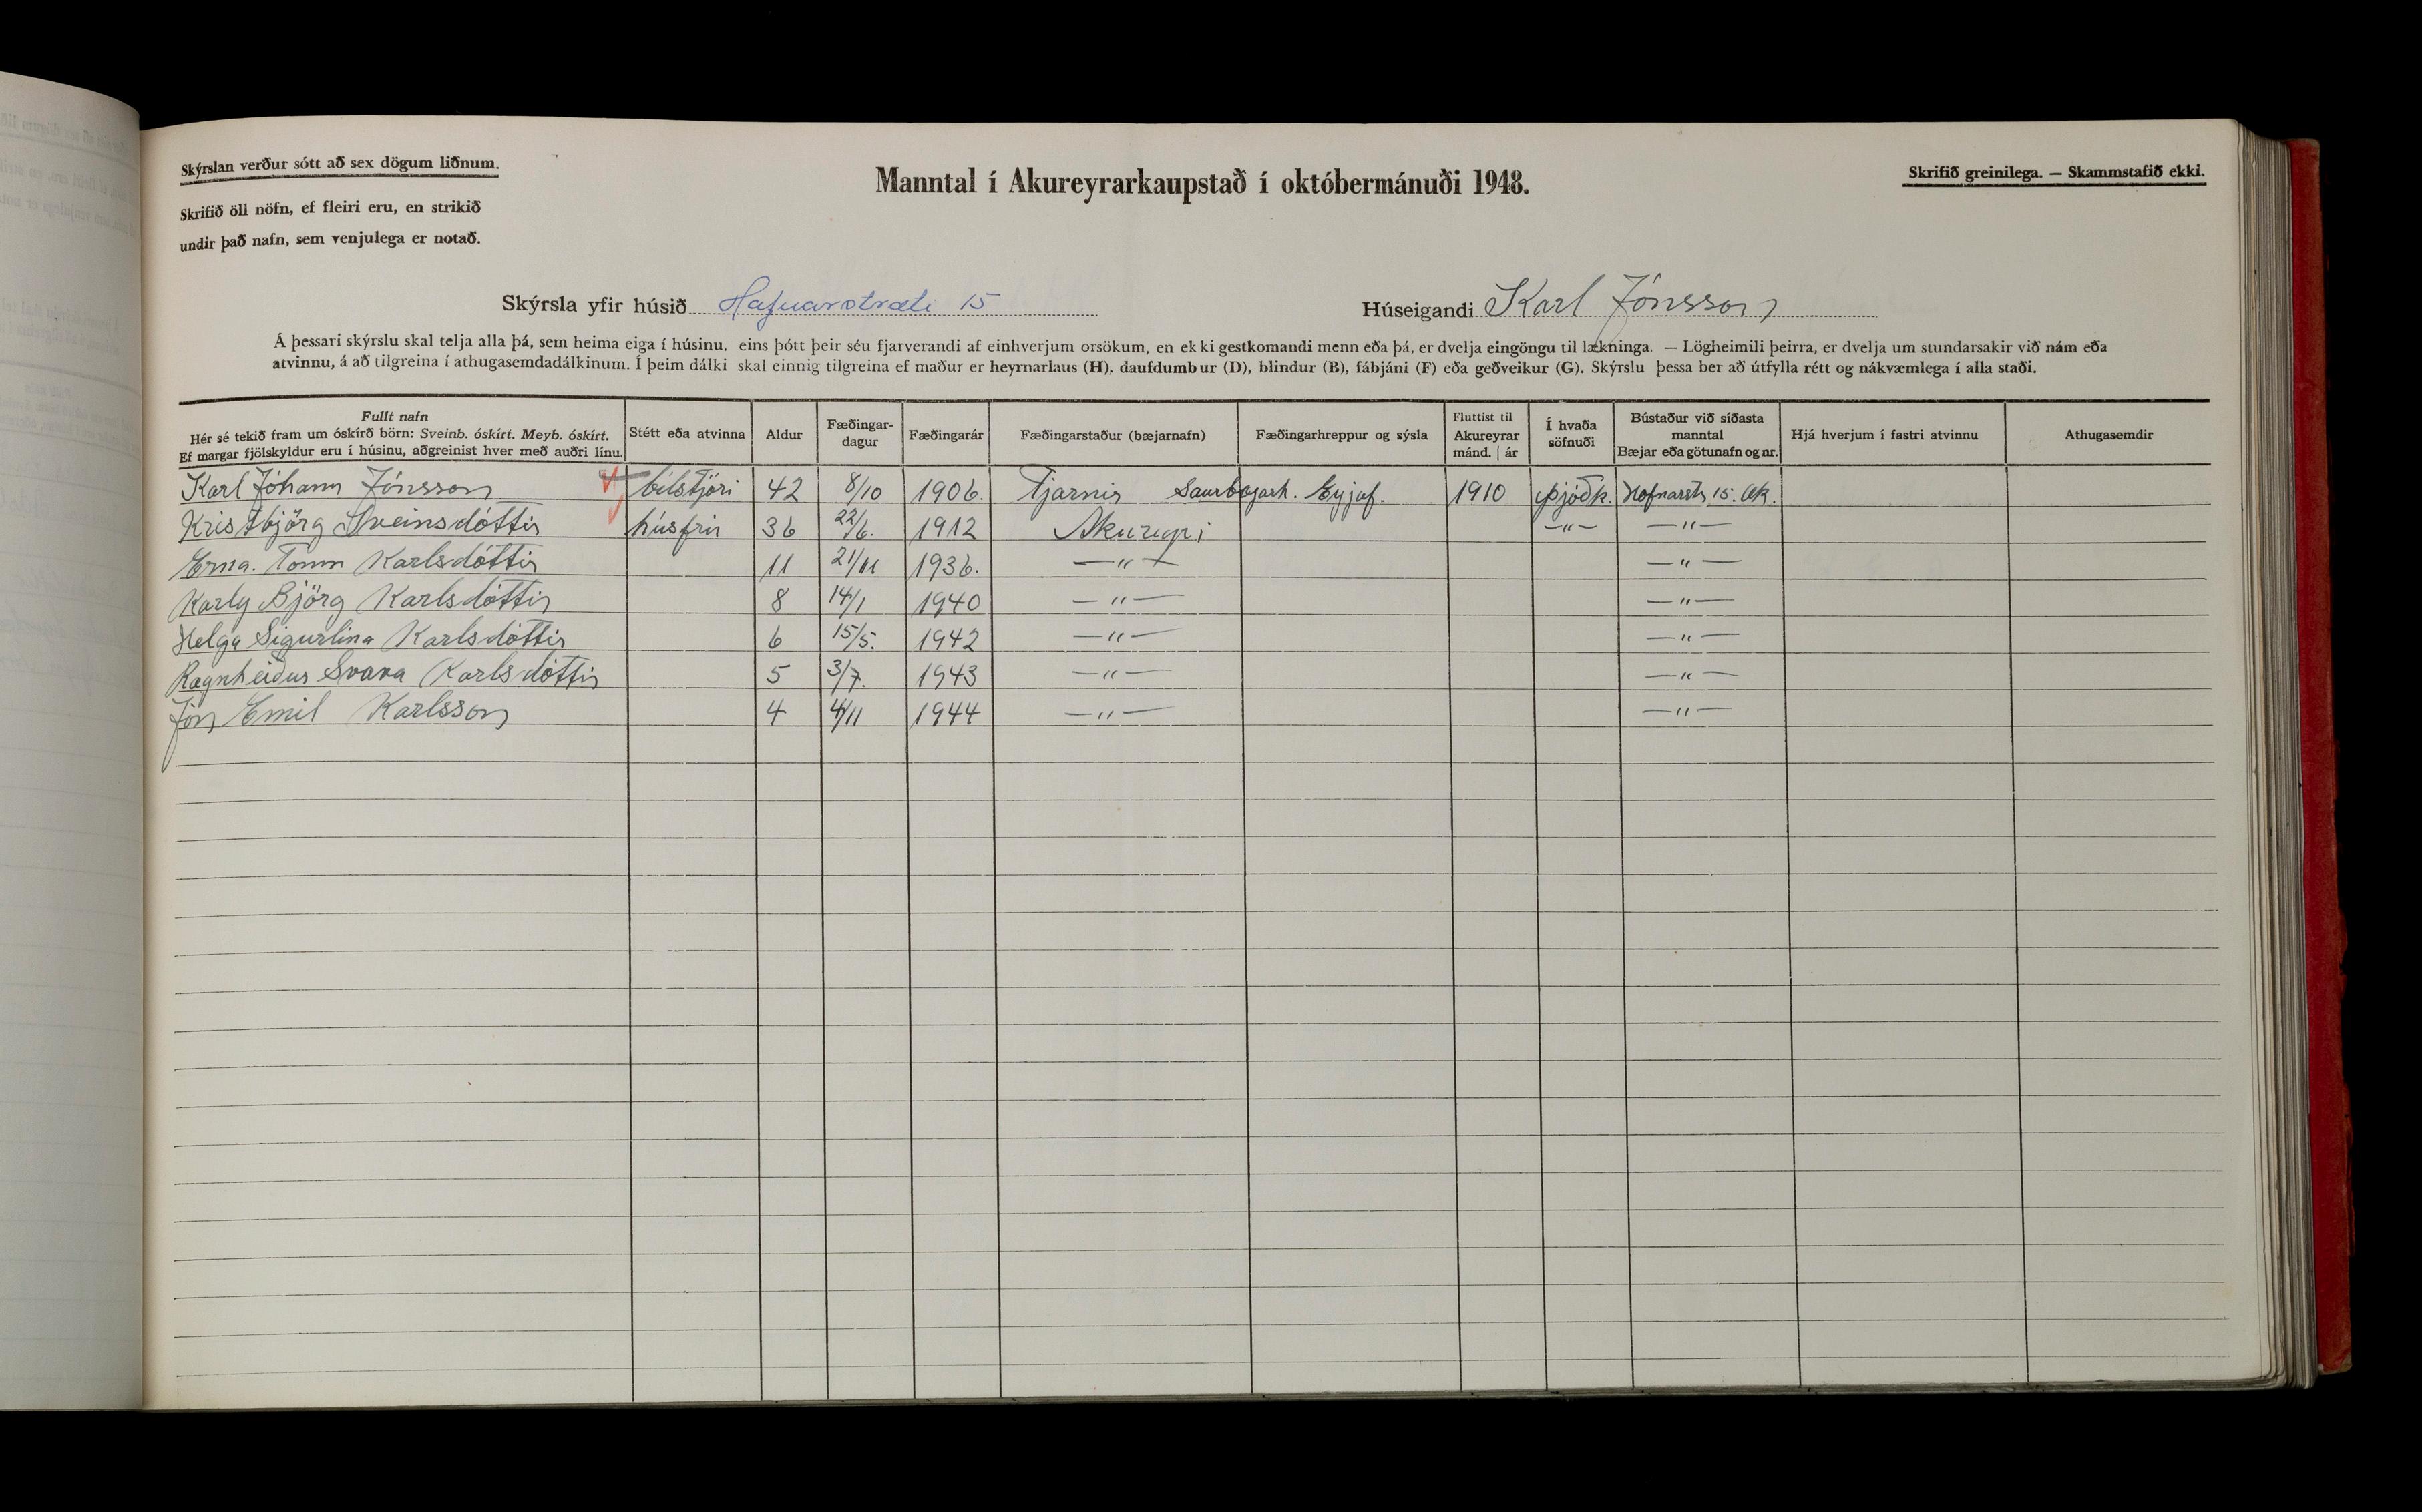 Skýrslan verður sótt að sex dögum liðnum.
Skrifið öll nöfn, ef fleiri eru, en strikið
undir það nafn, sem venjulega er notað.
Manntal í Akureyrarkaupstað í októbermánuði 1948.
Skrifið greinilega. — Skammstafið ekki.
Skýrsla yfir húsið Hafnarstræti 15
Húseigandi Karl Jónsson
Á þessari skýrslu skal telja alla þá, sem heima eiga í húsinu, eins þótt þeir séu fjarverandi af einhverjum orsökum, en ekki gestkomandi menn eða þá, er dvelja eingöngu til lækninga. — Lögheimili þeirra, er dvelja um stundarsakir við nám eða
atvinnu, á að tilgreina í athugasemdadálkinum. Í þeim dálki skal einnig tilgreina ef maður er heyrnarlaus (H), daufdumbur (D), blindur (B), fábjáni (F) eða geðveikur (G). Skýrslu þessa ber að útfylla rétt og nákvæmlega í alla staði.
Fullt nafn
Hér sé tekið fram um óskírð börn: Sveinb. óskírt. Meyb. óskírt.
Ef margar fjölskyldur eru í húsinu, aðgreinist hver með auðri línu.
Stétt eða atvinna
Aldur
Fæðingar-
dagur
Fæðingarár
Fæðingarstaður (bæjarnafn)
Fæðingarhreppur og sýsla
Fluttist til
Akureyrar
mánd. | ár
Í hvaða
söfnuði
Bústaður við síðasta
manntal
Bæjar eða götunafn og nr.
Hjá hverjum í fastri atvinnu
Athugasemdir
Karl Jóhann Jónsson bílstjóri 42 8/10 1906. Tjarnir Saurbæjarh. Eyjaf. 1910 þjóðk. Hafnarstr. 15. Ak.
Kristbjörg Sveinsdóttir húsfrú 36 22/6. 1912 Akureyri —"— —"—
Erna Karlsdóttir 11 21/11 1936. —"— —"—
Karly Björg Karlsdóttir 8 14/1 1940 —"— —"—
Helga Sigurlína Karlsdóttir 6 15/5. 1942 —"— —"—
Ragnheiður Svava Karlsdóttir 5 3/7. 1943 —"— —"—
Jón Emil Karlsson 4 4/11 1944 —"— —"—